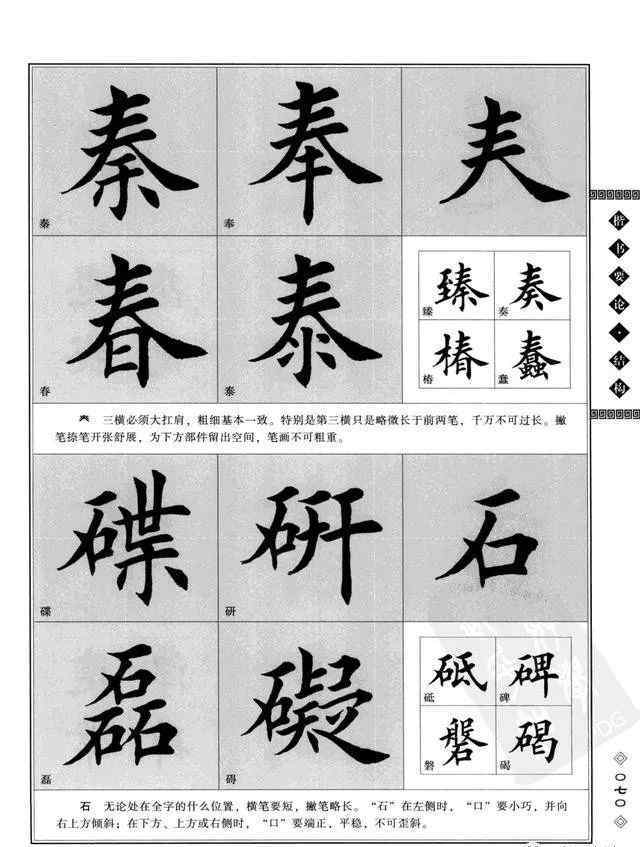 秦 奉
秦 奉
春 泰 臻 奏
臻 奏
椿 蠢
春 泰 椿 蠢
三横必须大扛肩，粗细基本一致。特别是第三横只是略微长于前两笔，千万不可过长。撇
笔捺笔开张舒展，为下方部件留出空间，笔画不可粗重。
碟 研 石
碟 研
磊 礙 砥 碑
砥 碑
磐 碣
磊 碍 磐 碣
石　无论处在全字的什么位置，横笔要短，撇笔略长。“石”在左侧时，“口”要小巧，并向
右上方倾斜；在下方、上方或右侧时，“口”要端正，平稳，不可歪斜。
楷书要论·结构
〇七〇